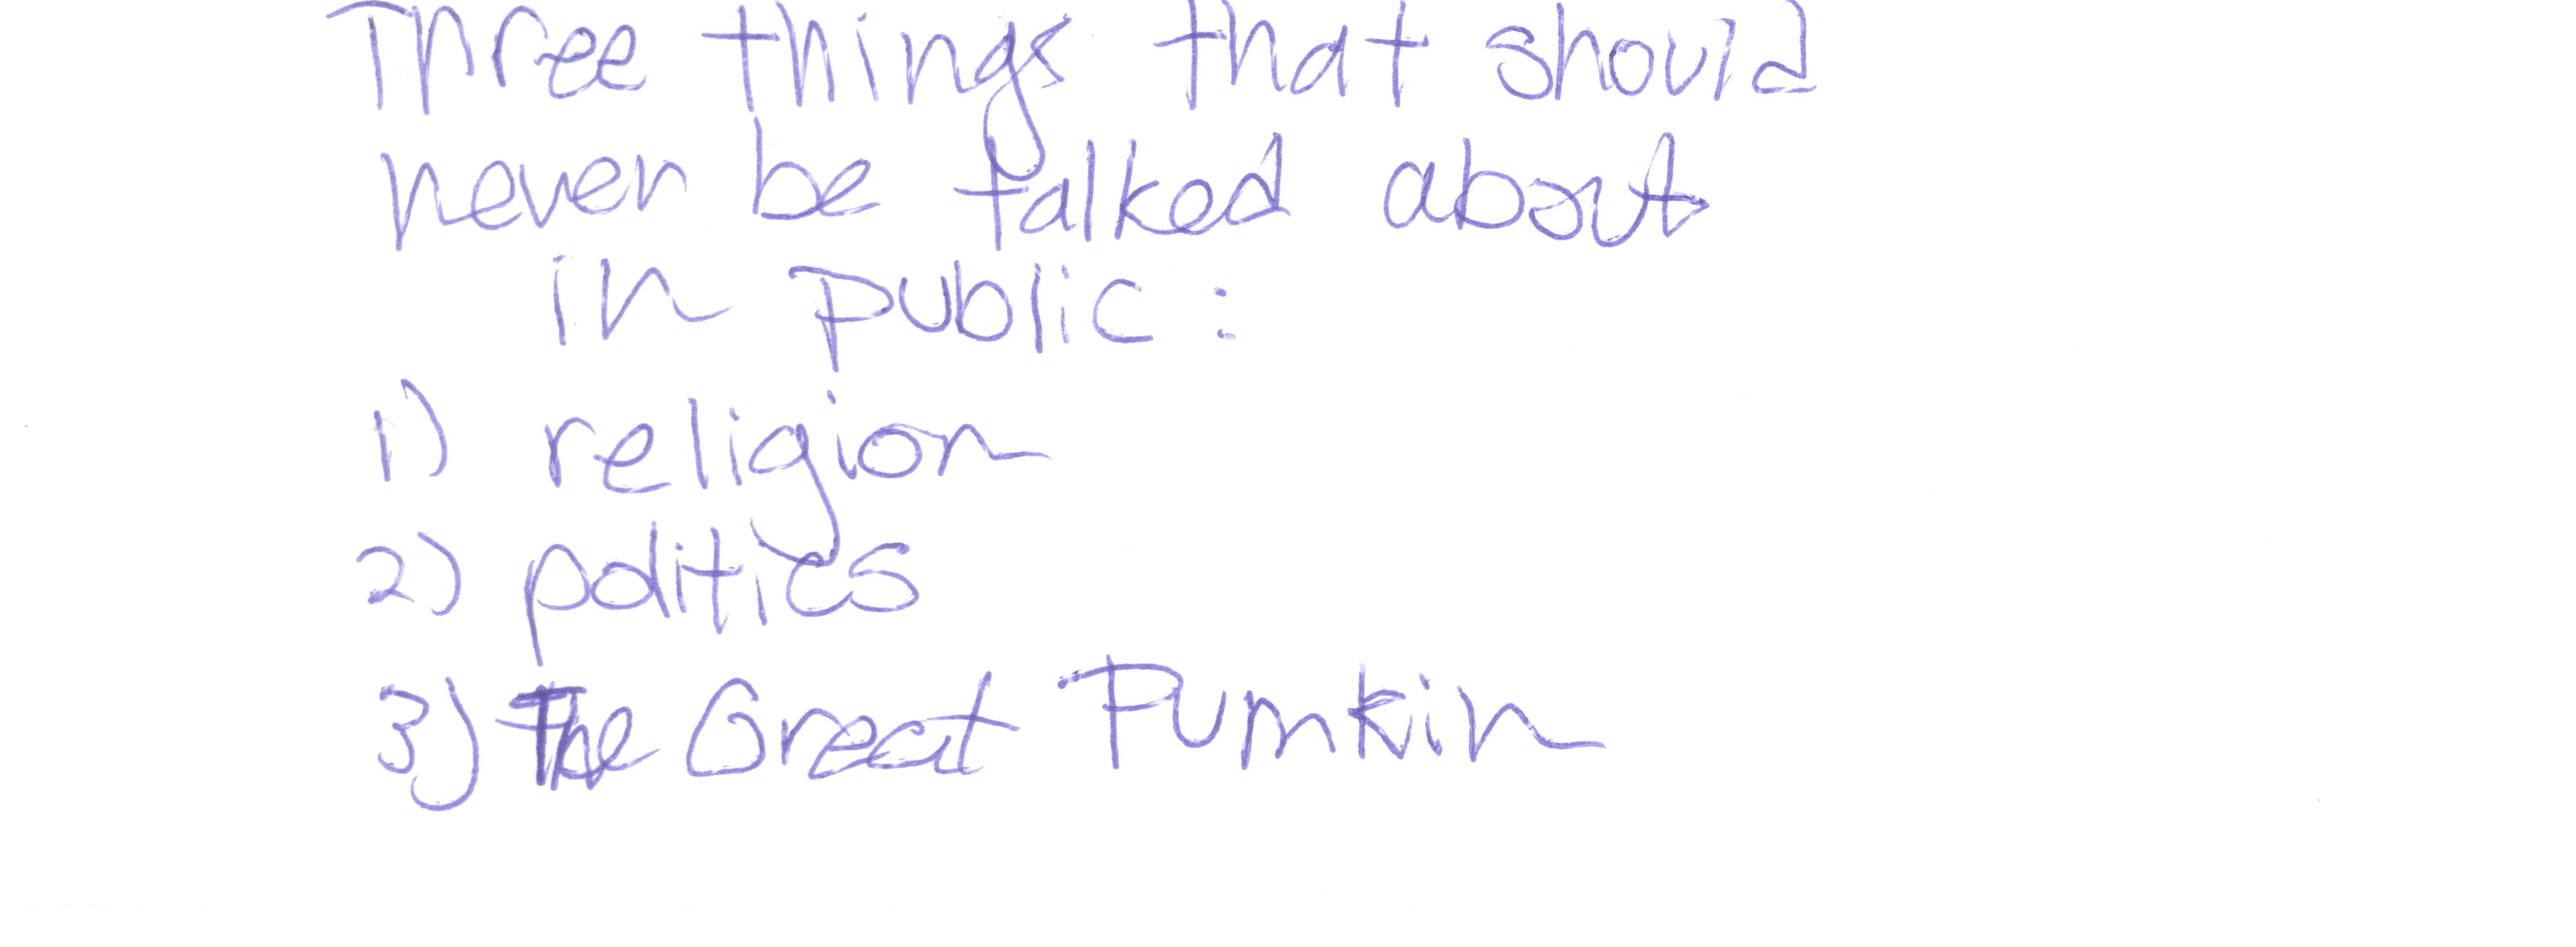 Three things that should
never be talked about
in public:
1) religion
2) politics
3) The Great Pumkin